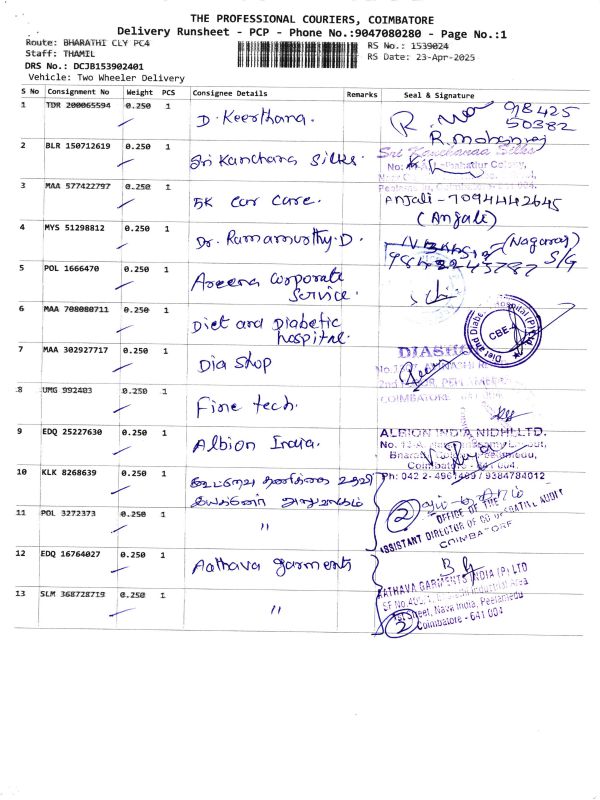 THE PROFESSIONAL COURIERS, COIMBATORE
Delivery Runsheet - PCP - Phone No.:9047080280 - Page No.:1
Route: BHARATHI CLY PC4
RS No.: 1539024
Staff: THAMIL
RS Date: 23-Apr-2025
DRS No.: DCJB153902401
Vehicle: Two Wheeler Delivery
S No Consignment No Weight PCS Consignee Details Remarks Seal & Signature
1 TDR 200065594 0.250 1 D. Keerthana. 98425
50382
R. mohanraj
2 BLR 150712619 0.250 1 Sri Kanchana Silks. Sri Kanchanaa Silks
3 MAA 577422797 0.250 1 5K car care. Anjali - 7094442645
(Anjali)
4 MYS 51298812 0.250 1 Dr. Ramamurthy. D. (Nagaraj)
S/G
5 POL 1666470 0.250 1 Areena Corporate
Service.
6 MAA 708080711 0.250 1 Diet and Diabetic
hospital.
CBE-4
7 MAA 302927717 0.250 1 Dia shop
COIMBATORE
8 UMG 992403 0.250 1 Fine tech.
9 EDQ 25227630 0.250 1 Albion India. ALBION INDIA NIDHI LTD.
Coimbatore - 641 004.
10 KLK 8268639 0.250 1 கூட்டுறவு தணிக்கை உதவி Ph: 042 2- 4961469 / 9384784012
இயக்குனர் அலுவலகம்
2
OFFICE OF THE
11 POL 3272373 0.250 1 " ASSISTANT DIRECTOR OF CO-OPERATIVE AUDIT
COIMBATORE
12 EDQ 16764027 0.250 1 Aathava garments
AATHAVA GARMENTS INDIA (P) LTD
13 SLM 368728719 0.250 1 "
1st Street, Nava India, Peelamedu
2 Coimbatore - 641 004